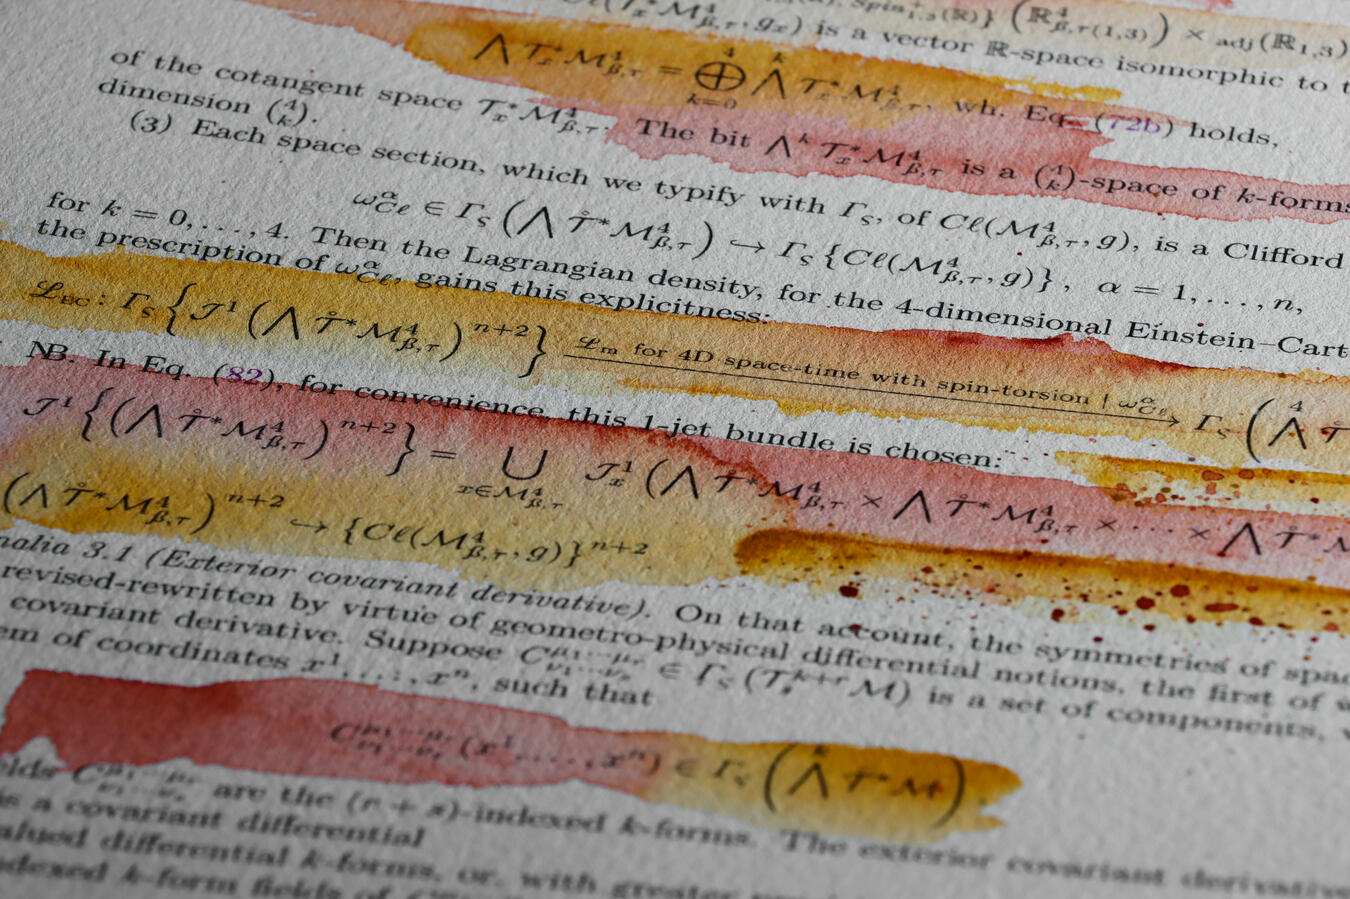 (ℝ⁴_{β,τ(1,3)}) × adj(ℝ_{1,3})
𝒯*_x ℳ⁴_{β,τ}, g_x) is a vector ℝ-space isomorphic to
⋀𝒯*_x ℳ⁴_{β,τ} = ⊕_{k=0}^{4} ⋀^k 𝒯*_x ℳ⁴_{β,τ}, wh. Eq. (72b) holds,
of the cotangent space 𝒯*_x ℳ⁴_{β,τ}. The bit ⋀^k 𝒯*_x ℳ⁴_{β,τ} is a (4 k)-space of k-forms
dimension (4 k).
(3) Each space section, which we typify with Γ_ς, of Cℓ(ℳ⁴_{β,τ}, g), is a Clifford
ω^α_{Cℓ} ∈ Γ_ς(⋀𝒯̊*ℳ⁴_{β,τ}) ↪ Γ_ς{Cℓ(ℳ⁴_{β,τ}, g)}, α = 1,...,n,
for k = 0,...,4. Then the Lagrangian density, for the 4-dimensional Einstein–Cart
the prescription of ω^α_{Cℓ}, gains this explicitness:
ℒ_{EC}: Γ_ς{𝒥¹(⋀𝒯̊*ℳ⁴_{β,τ})^{n+2}} ℒ_m for 4D space-time with spin-torsion | ω^α_{Cℓ} → Γ_ς(⋀⁴ 𝒯̊
NB. In Eq. (82), for convenience, this 1-jet bundle is chosen:
𝒥¹{(⋀𝒯̊*ℳ⁴_{β,τ})^{n+2}} = ⋃_{x∈ℳ⁴_{β,τ}} 𝒥¹_x(⋀𝒯̊*ℳ⁴_{β,τ} × ⋀𝒯̊*ℳ⁴_{β,τ} × ··· × ⋀𝒯̊*ℳ
(⋀𝒯̊*ℳ⁴_{β,τ})^{n+2} ↪ {Cℓ(ℳ⁴_{β,τ}, g)}^{n+2}
nalia 3.1 (Exterior covariant derivative). On that account, the symmetries of spac
revised-rewritten by virtue of geometro-physical differential notions, the first of w
covariant derivative. Suppose C^{μ₁···μ_r}_{ν₁···ν_s} ∈ Γ_ς(𝒯_s^{k+r}ℳ) is a set of components,
em of coordinates x¹,...,xⁿ, such that
C^{μ₁···μ_r}_{ν₁···ν_s}(x¹,...,xⁿ) ∈ Γ_ς(⋀^k 𝒯*ℳ)
elds C^{μ₁···μ_r}_{ν₁···ν_s} are the (r + s)-indexed k-forms. The exterior covariant derivativ
is a covariant differential
alued differential k-forms, or, with greater
ndexed k-form fields of